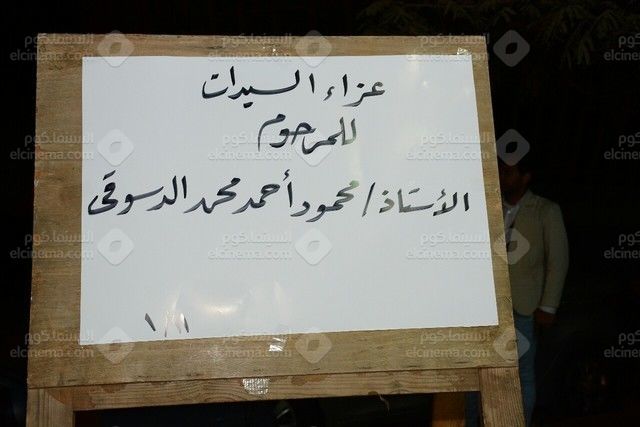 عزاء السيدات
للمرحوم
الأستاذ/ محمود أحمد محمد الدسوقى
١/١١
السينما.كوم
elcinema.com